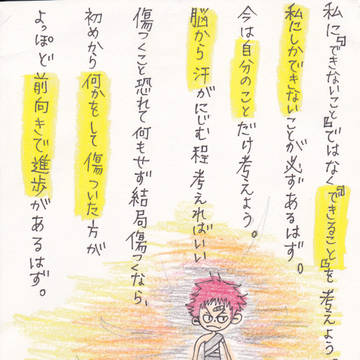 私に『できないこと』ではなく『できること』を考えよう。
私にしかできないことが必ずあるはず。
今は自分のことだけ考えよう。
脳から汗がにじむ程考えればいい
傷つくこと恐れて何もせず結局傷つくなら、
初めから何かをして傷ついた方が
よっぽど前向きで進歩があるはず。